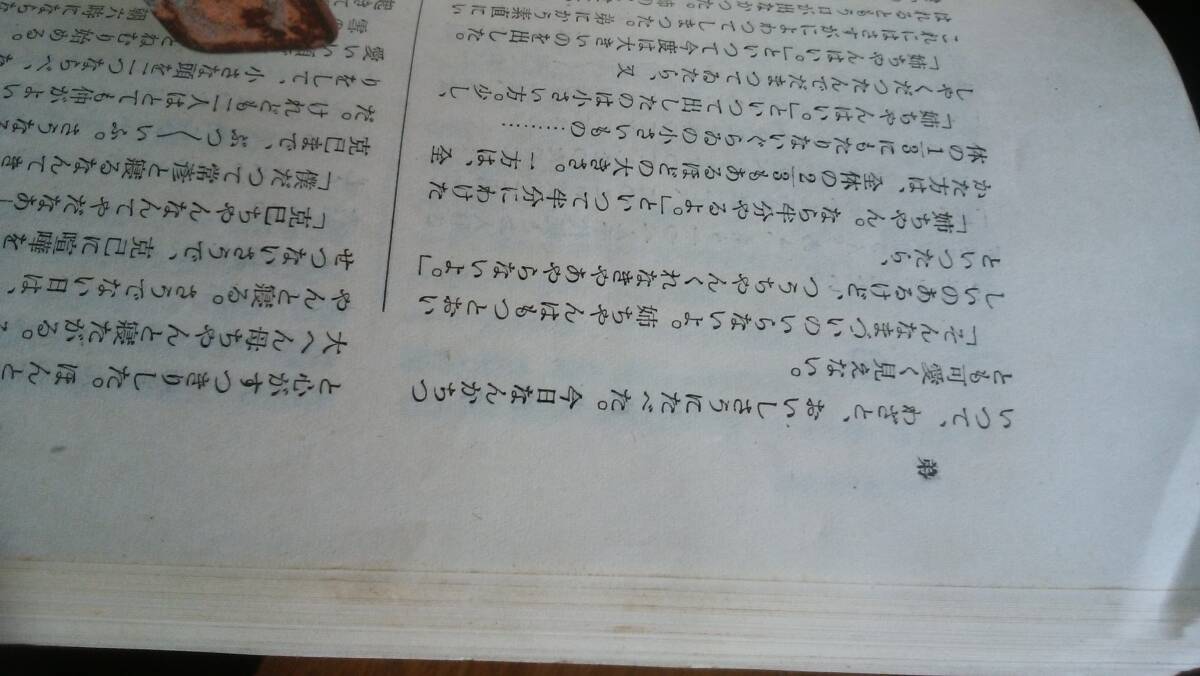 弟
いつて、わざと、おいしさうにたべた。今日なんかちつ
とも可愛く見えない。
「そんなまづいのいらないよ。姉ちやんはもつとおい
しいのあるけど、つうちやんくれなきやあやらないよ。」
といつたら、
「姉ちやん。なら半分やるよ。」といつて半分にわけた
かた方は、全体の2/3もあるほどの大きさ。一方は、全
体の1/3にもたりないぐらゐの小さいもの………
「姉ちやんはい。」といつて出したのは小さい方。少し、
しやくだつたんでだまつてゐたら、又
「姉ちやんはい。」といつて今度は大きいのを出した。
これにはさすがによわつてしまつた。弟にかう素直にい
はれるともう口が出なかつた。
と心がすつきりした。ほんと
大へん母ちやんと寝たがる。
やんと寝る。さうでない日は、
せつないさうで、克己に喧嘩を
「克己ちやんなんてやだなあー
「僕だつて常達と寝るなんてき
克己まで、ぶつ〱いふ。さうなる
だ。けれども二人はとても仲がよい
りをして、小さな頭を二つならべ、
愛いい とねむり始める。
朝六時になら